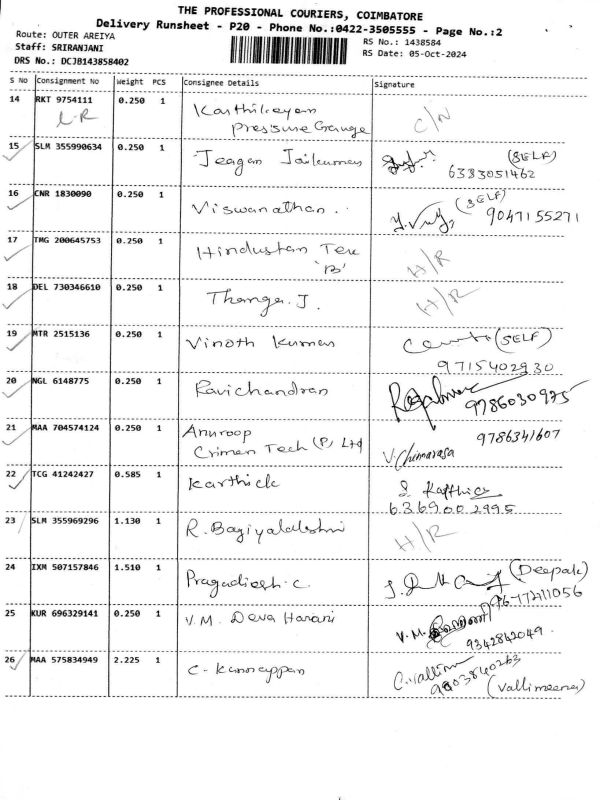 THE PROFESSIONAL COURIERS, COIMBATORE
Delivery Runsheet - P20 - Phone No.:0422-3505555 - Page No.:2
Route: OUTER AREIYA
RS No.: 1438584
Staff: SRIRANJANI
RS Date: 05-Oct-2024
DRS No.: DCJB143858402
S No Consignment No Weight PCS Consignee Details Signature
14 RKT 9754111 0.250 1 Karthikeyan
L-R Pressure Gauge C/N
15 SLM 355990634 0.250 1 Jeagan Jaikumar (SELF)
6383051462
16 CNR 1830090 0.250 1 Viswanathan. (SELF)
9047155271
17 TMG 200645753 0.250 1 Hindustan Tex H/R
'B'
18 DEL 730346610 0.250 1 Thanga. J. H/R
19 MTR 2515136 0.250 1 Vinoth Kumar (SELF)
9715402930
20 NGL 6148775 0.250 1 Ravichandran
9786030975
21 MAA 704574124 0.250 1 Anuroop 9786341607
Crimen Tech (P) Ltd V. Chinnarasa
22 TCG 41242427 0.585 1 Karthick S. Karthick
6369002995
23 SLM 355969296 1.130 1 R. Bagiyalakshmi H/R
24 IXM 507157846 1.510 1 Pragadiesh. C. (Deepak)
25 KUR 696329141 0.250 1 V.M. Deva Harani V. M.
9342842049
26 MAA 575834949 2.225 1 C. Kannappan C. Vallim
9003840263
(Vallimeena)